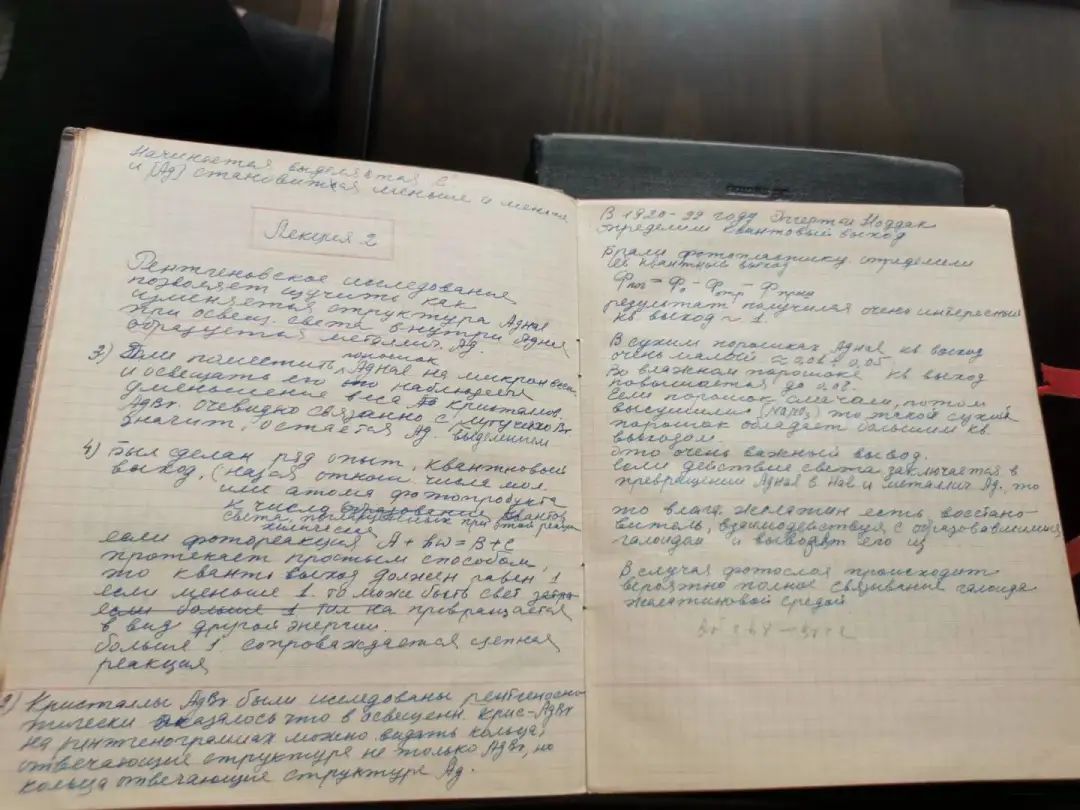 Начинается выделятся С
и [Ag] становится меньше и меньше
Лекция 2
Рентгеновское исследования
позволяет изучить как
изменяется структура AgHal
При освещ. света внутри AgHal
образуется металлич. Ag.
3) Если поместить порошок AgHal на микрон весы
и освещать его наблюдается
уменьшение веса кристаллов.
AgBr. очевидно связанно с Br
значит, остаётся Ag. выделением
4) Был сделан ряд опыт, квантновый
выход, (назая отнош. числа мол.
или атома фотопродукта
к числу квантов
света, поглащенных при этой реак
если фотореакция A + hω = B + C
протекает простым способом,
то квантн выход должен равен 1
если меньше 1. то може быть свет
если больше 1 превращается
в вид другой энергии.
больше 1 сопроваждается цепная
реакция
2) Кристаллы AgBr были исследованы рентгеноско
пически оказалось что в освещенн. крис-AgBr
на рентгенограммах можно видать кольца,
отвечающие структуре не только AgBr, но
кольца отвечающие структуре Ag.
В 1920-22 году Эггерт и Ноддак
определили квантовый выход
Брали фотопластинку. определили
её квантный выход
Φпогл = Φ₀ - Φотр - Φ
результат получился очень интересный
кв выход ~ 1.
В сухим порошках AgHal кв выход
очень малый
Во влажном порошоке кв выход
повышается до
Если порошок смачали, потом
высушили (NaNO₂) то такой сухой
порошок обладает большим кв.
выходом.
это очень важный вывод.
если действие света заключается в
превращении AgHal в Hal и металлич Ag, то
то влага желатин есть восстано-
витель, взаимодействуя с образовавшимися
галоидом и выводят его из
В случая фотослоя происходит
вероятно полное связывание галоида
желатиновой средой